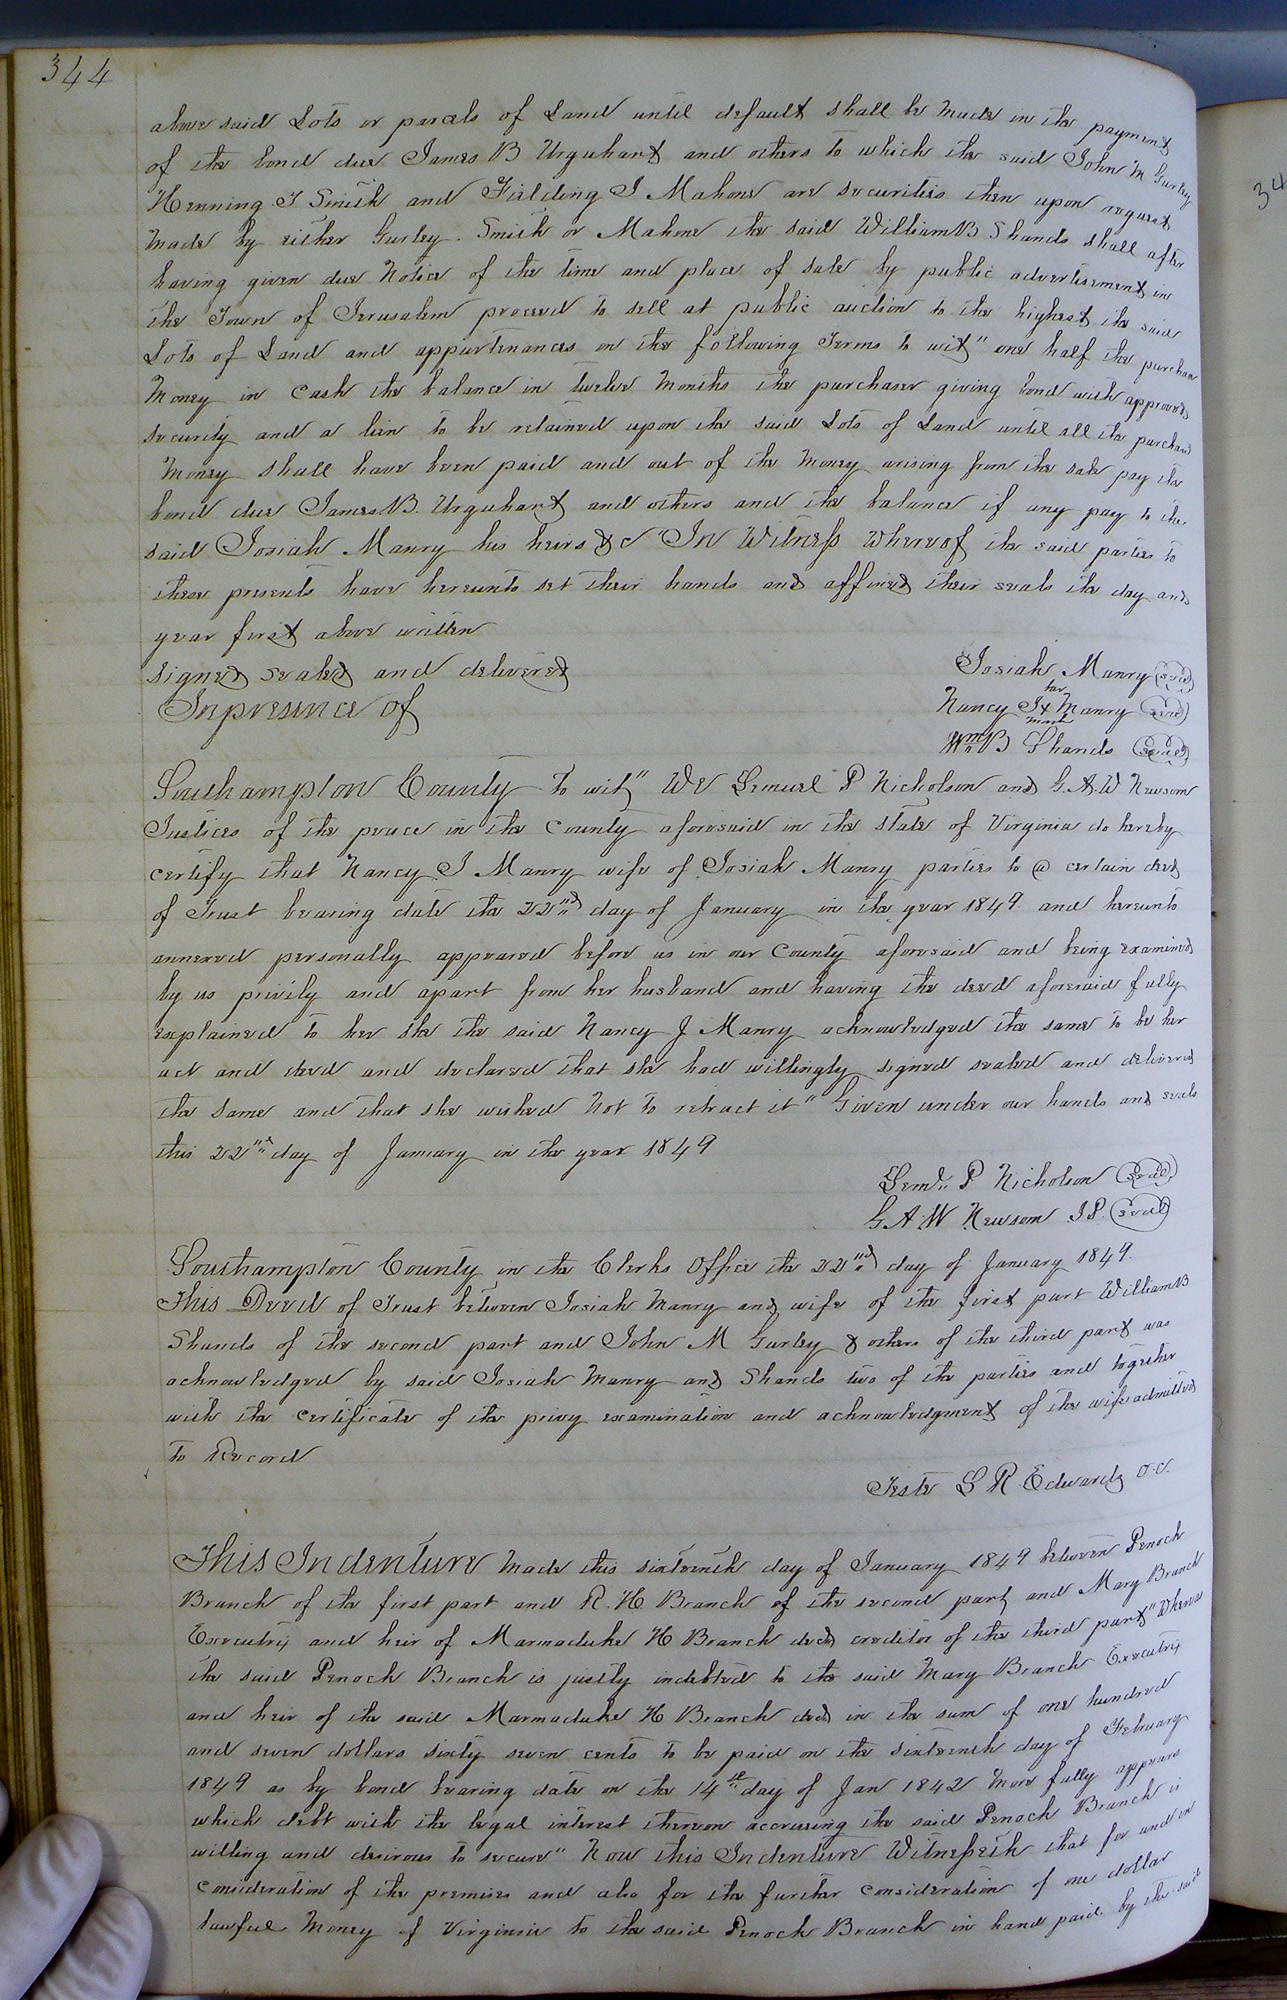 344
above said Lots or parcels of Land until default shall be made in the payment
of the bond due James B Urquhart and others to which the said John M Gurley
Henning T Smith and Fielding J Mahone are securities then upon request
made by either Gurley. Smith or Mahone the said William B Shands shall after
having given due notice of the time and place of sale by public advertisement in
the Town of Jerusalem proceed to sell at public auction to the highest the said
Lots of Land and appurtenances on the following Terms to wit" one half the purchase
Money in Cash the balance in twelve Months the purchaser giving bond with approved
security and a lien to be retained upon the said Lots of Land until all the purchase
Money shall have been paid and out of the Money arising from the sale pay the
bond due James B. Urquhart and others and the balance if any pay to the
said Josiah Manry his heirs &c "In Witness Whereof the said parties to
these presents have hereunto set their hands and affixed their seals the day and
year first above written
signed sealed and delivered
In presence of
Josiah Manry (seal)
her
Nancy J x Manry (seal)
mark
Wm B Shands (seal)
Southampton County to wit" We Lemuel P Nicholson and G. A. W Newsom
Justices of the peace in the County aforesaid in the state of Virginia do hereby
certify that Nancy J Manry wife of Josiah Manry parties to a certain deed
of Trust bearing date the 22nd day of January in the year 1849 and hereunto
annexed personally appeared before us in our County aforesaid and being examined
by us privily and apart from her husband and having the deed aforesaid fully
explained to her she the said Nancy J Manry acknowledged the same to be her
act and deed and declared that she had willingly signed sealed and delivered
the same and that she wished not to retract it" Given under our hands and seals
this 22nd day of January in the year 1849
Leml. P Nicholson (seal)
G. A. W Newsom J P. (seal)
Southampton County in the Clerks Office the 22nd day of January 1849.
This Deed of Trust between Josiah Manry and wife of the first part William B
Shands of the second part and John M Gurley & others of the third part was
acknowledged by said Josiah Manry and Shands two of the parties and together
with the certificate of the privy examination and acknowledgment of the wife admitted
to Record
Teste L R Edwards c.c.
This Indenture made this sixteenth day of January 1849 between Penoch
Branch of the first part and R. H Branch of the second part and Mary Branch
Executrix and heir of Marmaduke H Branch decd creditor of the third part" Whereas
the said Penoch Branch is justly indebted to the said Mary Branch Executrix
and heir of the said Marmaduke H Branch decd in the sum of one hundred
and seven dollars sixty seven cents to be paid on the sixteenth day of February
1849 as by bond bearing date on the 14th day of Jan 1842 more fully appears
which debt with the legal interest thereon accruing the said Penoch Branch is
willing and desirous to secure" Now this Indenture Witnesseth that for and in
consideration of the premises and also for the further consideration of one dollar
lawful Money of Virginia to the said Penoch Branch in hand paid by the said
34